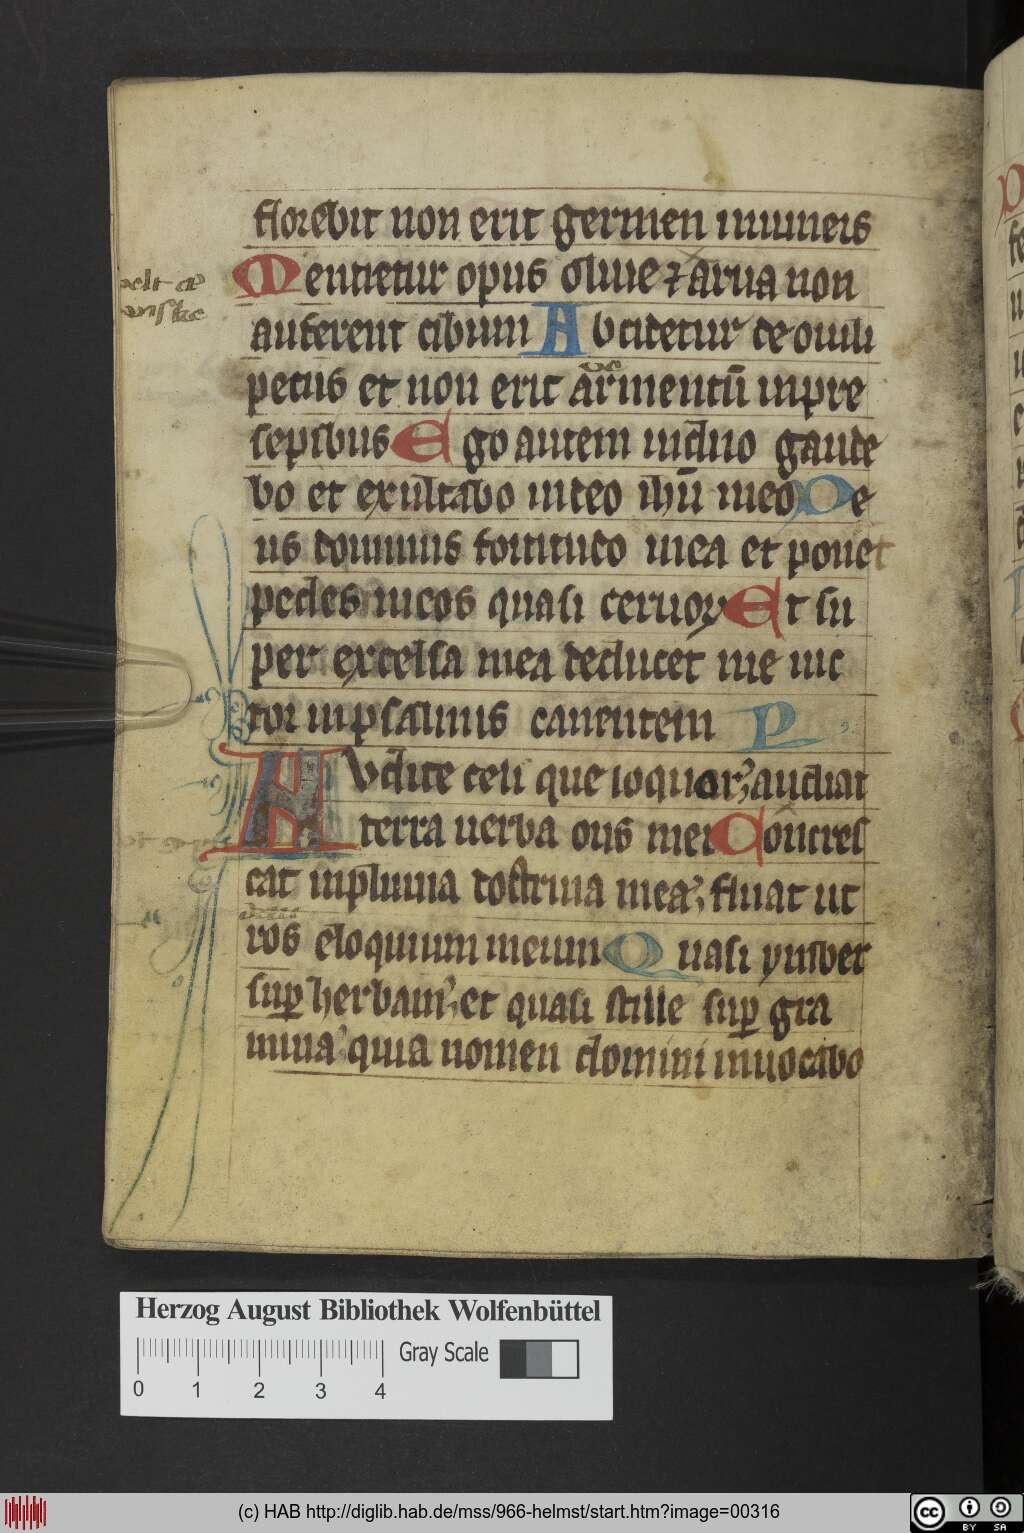 florebit non erit germen inuineis
Mentietur opus oliue ⁊ arua non
auferent cibum Abcidetur de ouili
pecus et non erit armentū inpre
sepibus Ego autem indn̄o gaude
bo et exultabo indeo ihū meo De
us dominus fortitudo mea et ponet
pedes meos quasi ceruoꝝ Et su
per excelsa mea deducet me uic
tor inpsalmis canentem P
AVdite celi que loquor audiat
terra uerba oris mei Concres
cat inpluuia doctrina mea fluat ut
ros eloquium meum Quasi ymber
suꝑ herbam et quasi stille suꝑ gra
mina quia nomen domini inuocabo
Herzog August Bibliothek Wolfenbüttel
Gray Scale
0 1 2 3 4
(c) HAB http://diglib.hab.de/mss/966-helmst/start.htm?image=00316
cc BY SA